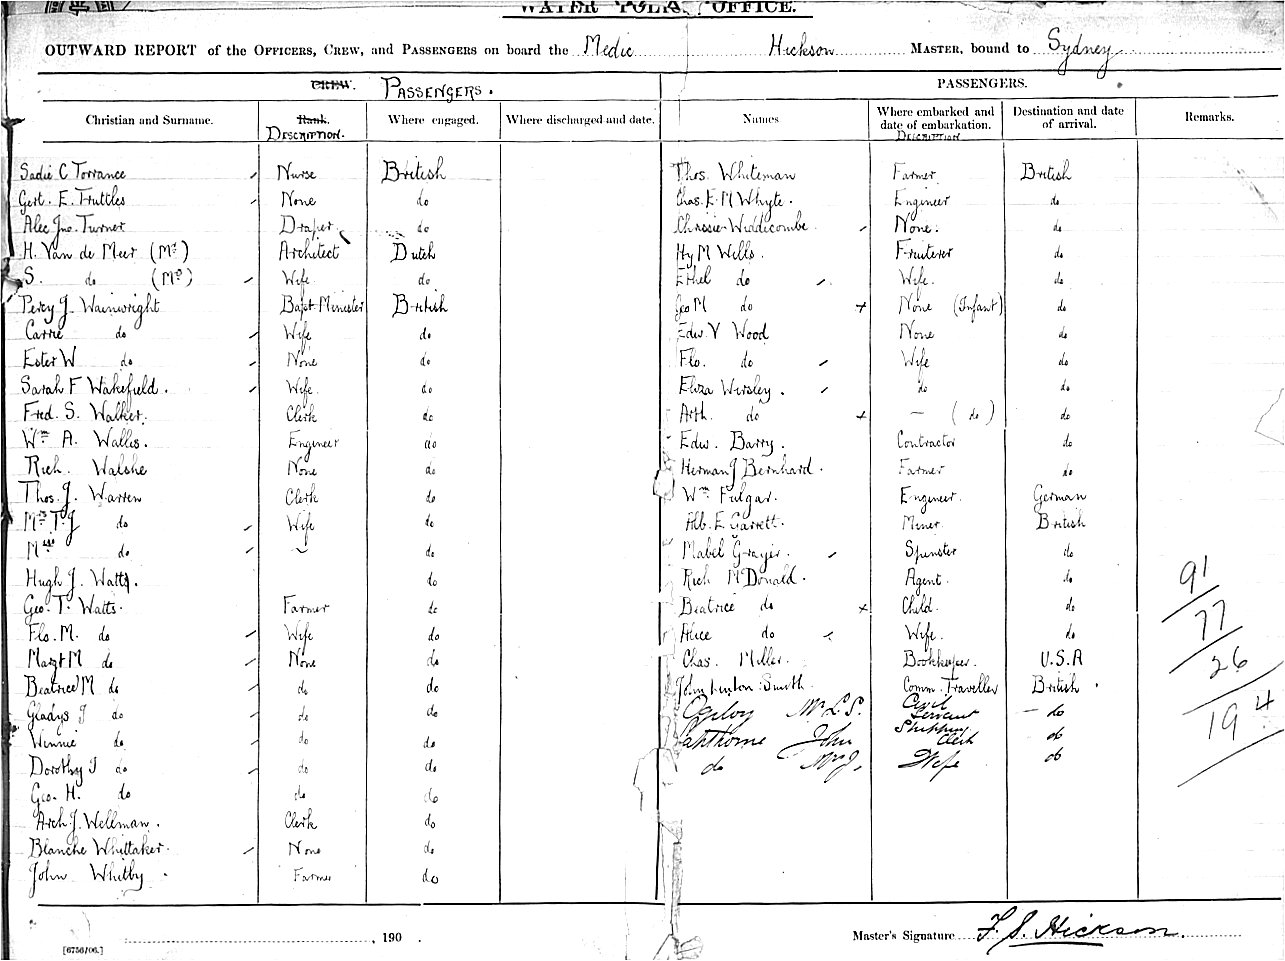 WATER POLICE OFFICE.
OUTWARD REPORT of the OFFICERS, CREW, and PASSENGERS on board the Medic Hickson MASTER, bound to Sydney
CREW. PASSENGERS. PASSENGERS.
Christian and Surname. Rank. DESCRIPTION. Where engaged. Where discharged and date. Names Where embarked and date of embarkation. DESCRIPTION Destination and date of arrival. Remarks.
Sadie C Torrance Nurse British
Gert. E. Truttles None do
Alec Jno. Turner Draper do
H. Van de Meer (Mr) Architect Dutch
S. do (Mrs) Wife do
Percy J. Wainwright Bapt Minister British
Carrie do Wife do
Ester W do None do
Sarah F Wakefield. Wife do
Fred. S. Walker. Clerk do
Wm A. Walles. Engineer do
Rich. Walshe None do
Thos. J. Warren Clerk do
Mrs T. J do Wife do
Miss do — do
Hugh J. Watts. do
Geo. T. Watts. Farmer do
Flo. M. do Wife do
Margt M do None do
Beatrice M do do do
Gladys J do do do
Winnie do do do
Dorothy J do do do
Geo. H. do do do
Arch J. Wellman. Clerk do
Blanche Whittaker. None do
John Whitby Farmer do
Thos. Whiteman Farmer British
Chas. E. M Whyte. Engineer do
Chrissie Widdicombe None. do
Hy M Wills. Fruiterer do
Ethel do Wife. do
Geo M do + None (Infant) do
Edw. V Wood None do
Flo. do Wife do
Eliza Wersley. do do
Arth. do + — (do) do
Edw. Barry. Contractor do
Herman J Bernhard. Farmer do
Wm Fulgar. Engineer. German
Alb. E Garrett. Miner. British
Mabel Grayer. Spinster do
Rich McDonald. Agent. do
Beatrice do + Child. do
Alice do Wife. do
Chas. Miller. Bookkeeper. U.S.A
John Linton Smith Comm. Traveller British.
Ogilvy Mr L.S. Civil Servant — do
John Shipping Clerk — do
do Mrs J. Wife do
91
77
26
194
190
[6756/06.]
Master's Signature F. S. Hickson.